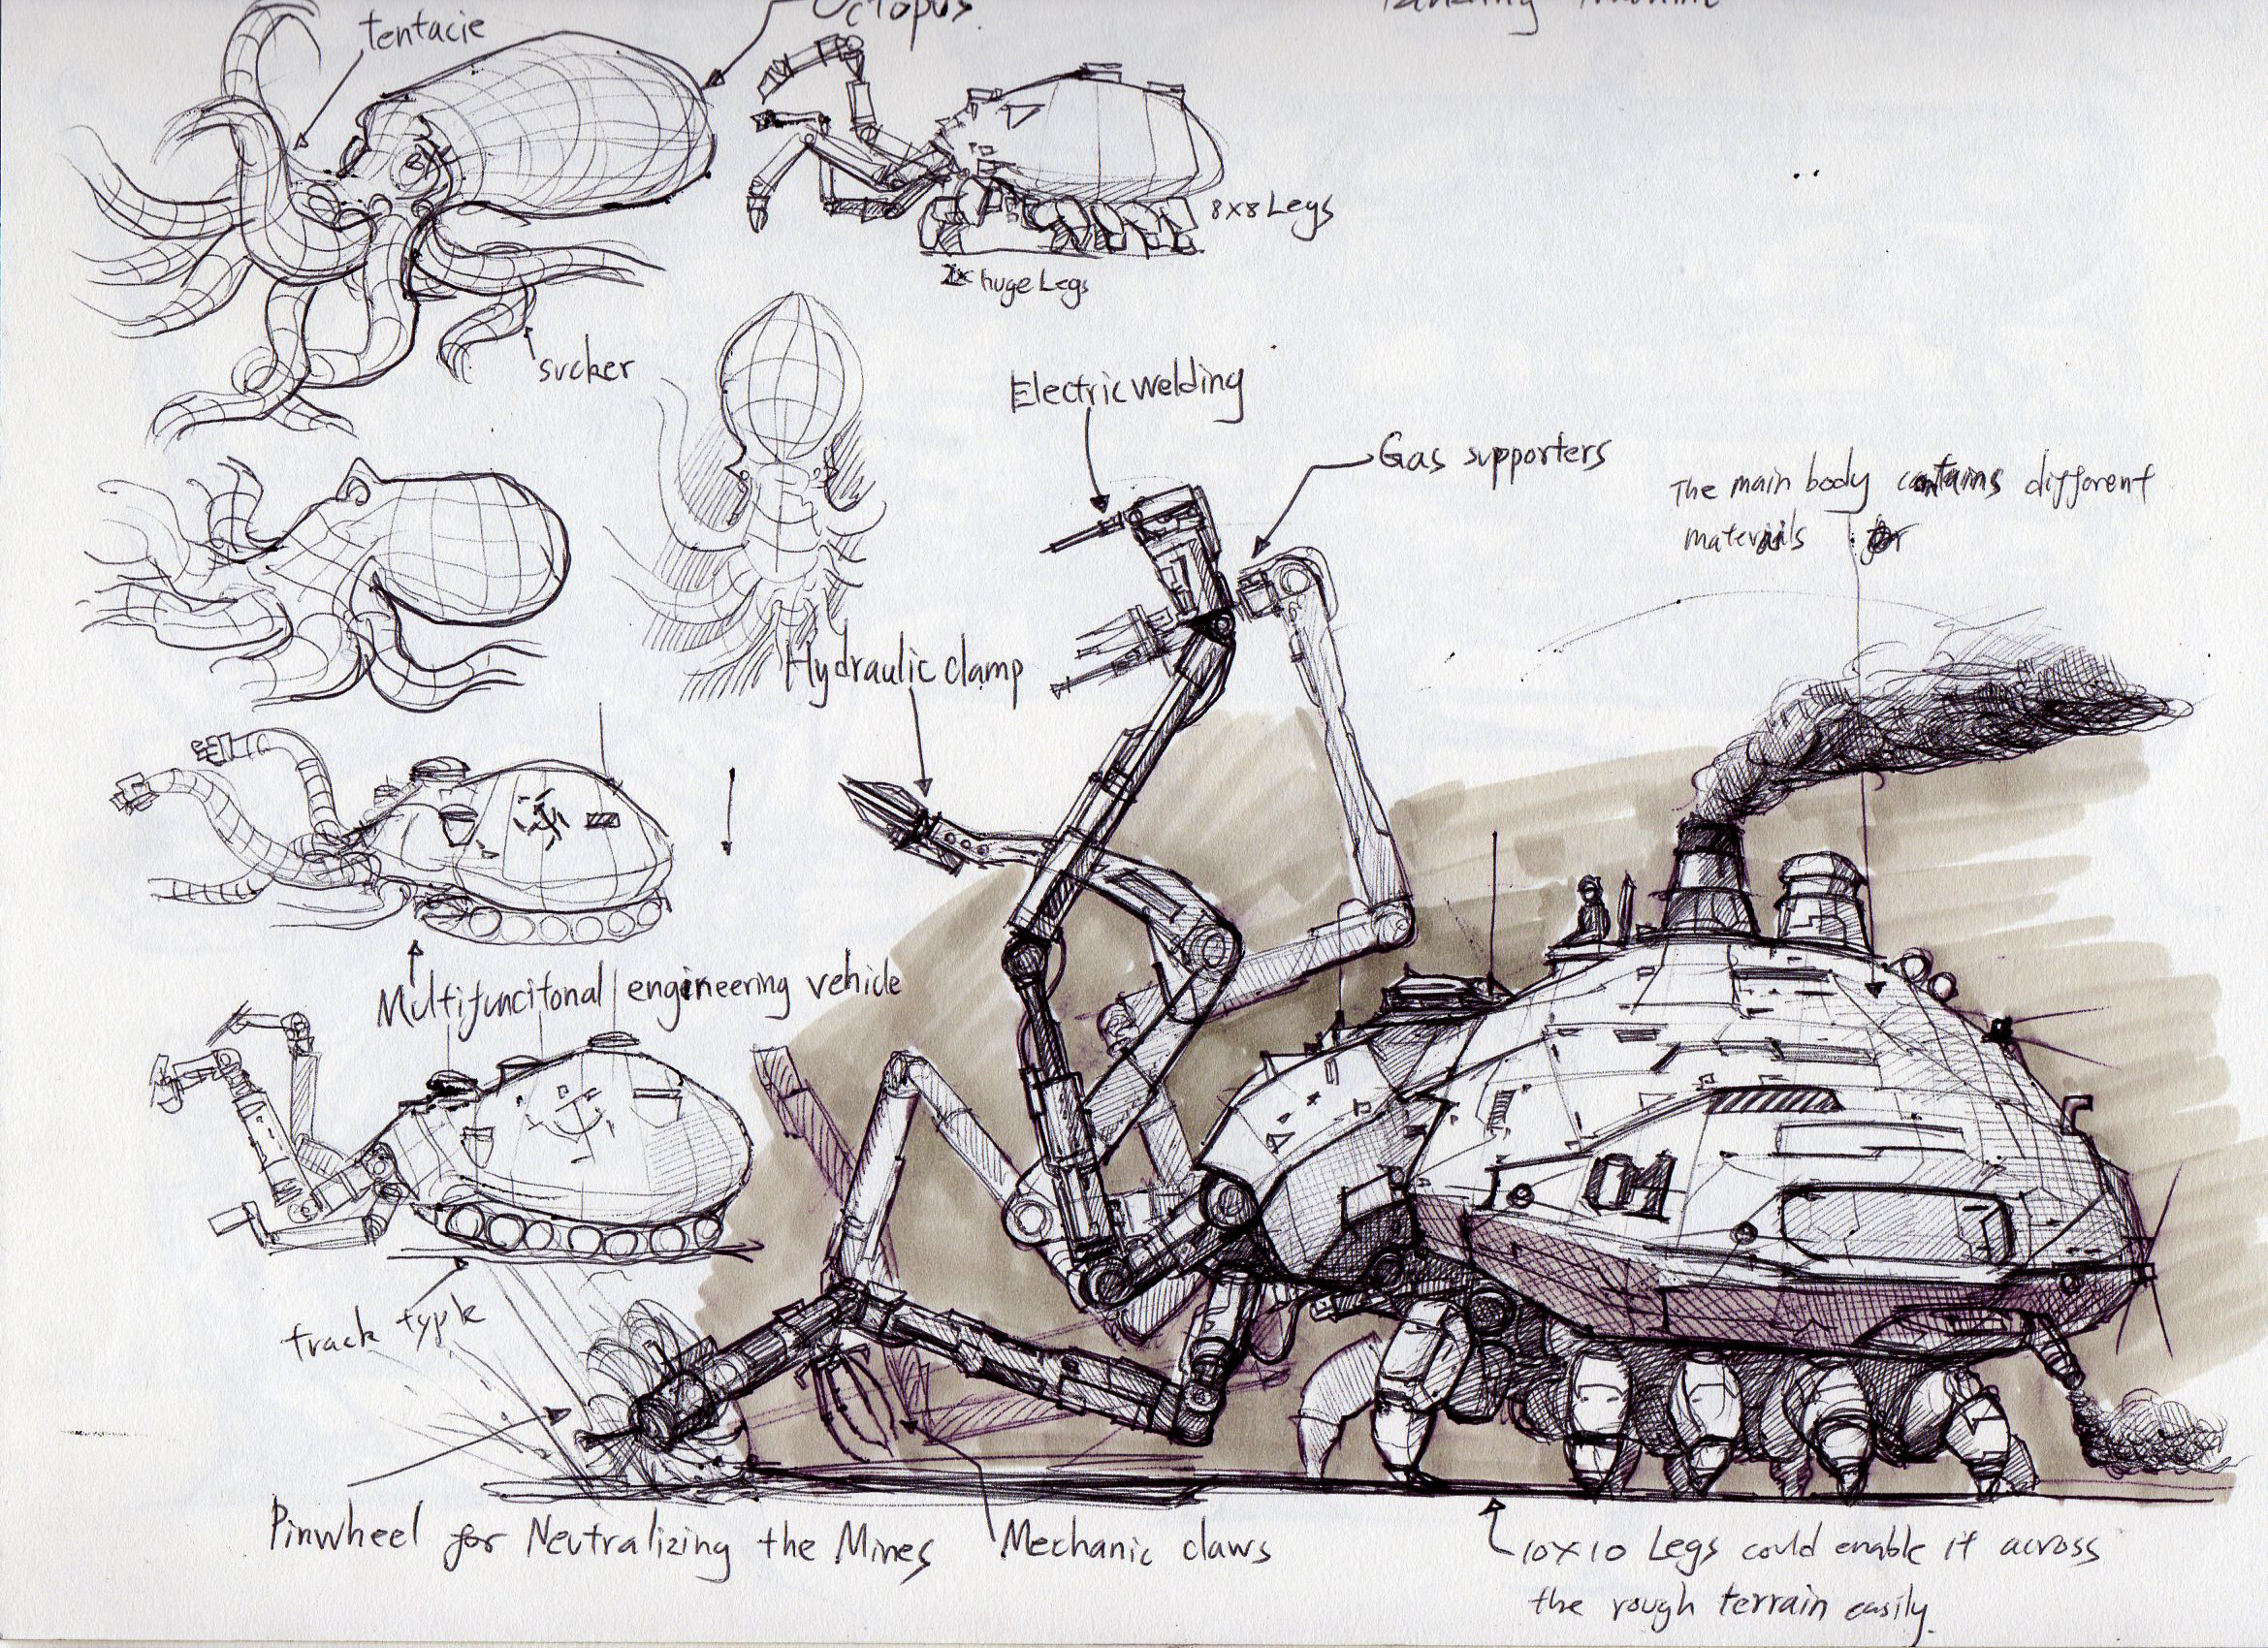 tentacie
Octopus.
8x8 Legs
2x huge Legs
sucker
Electric welding
Gas supporters
The main body contains different
materials for
Hydraulic clamp
Multifuncitonal engineering vehicle
track type
Pinwheel for Neutralizing the Mines
Mechanic claws
10x10 Legs could enable it across
the rough terrain easily.
04